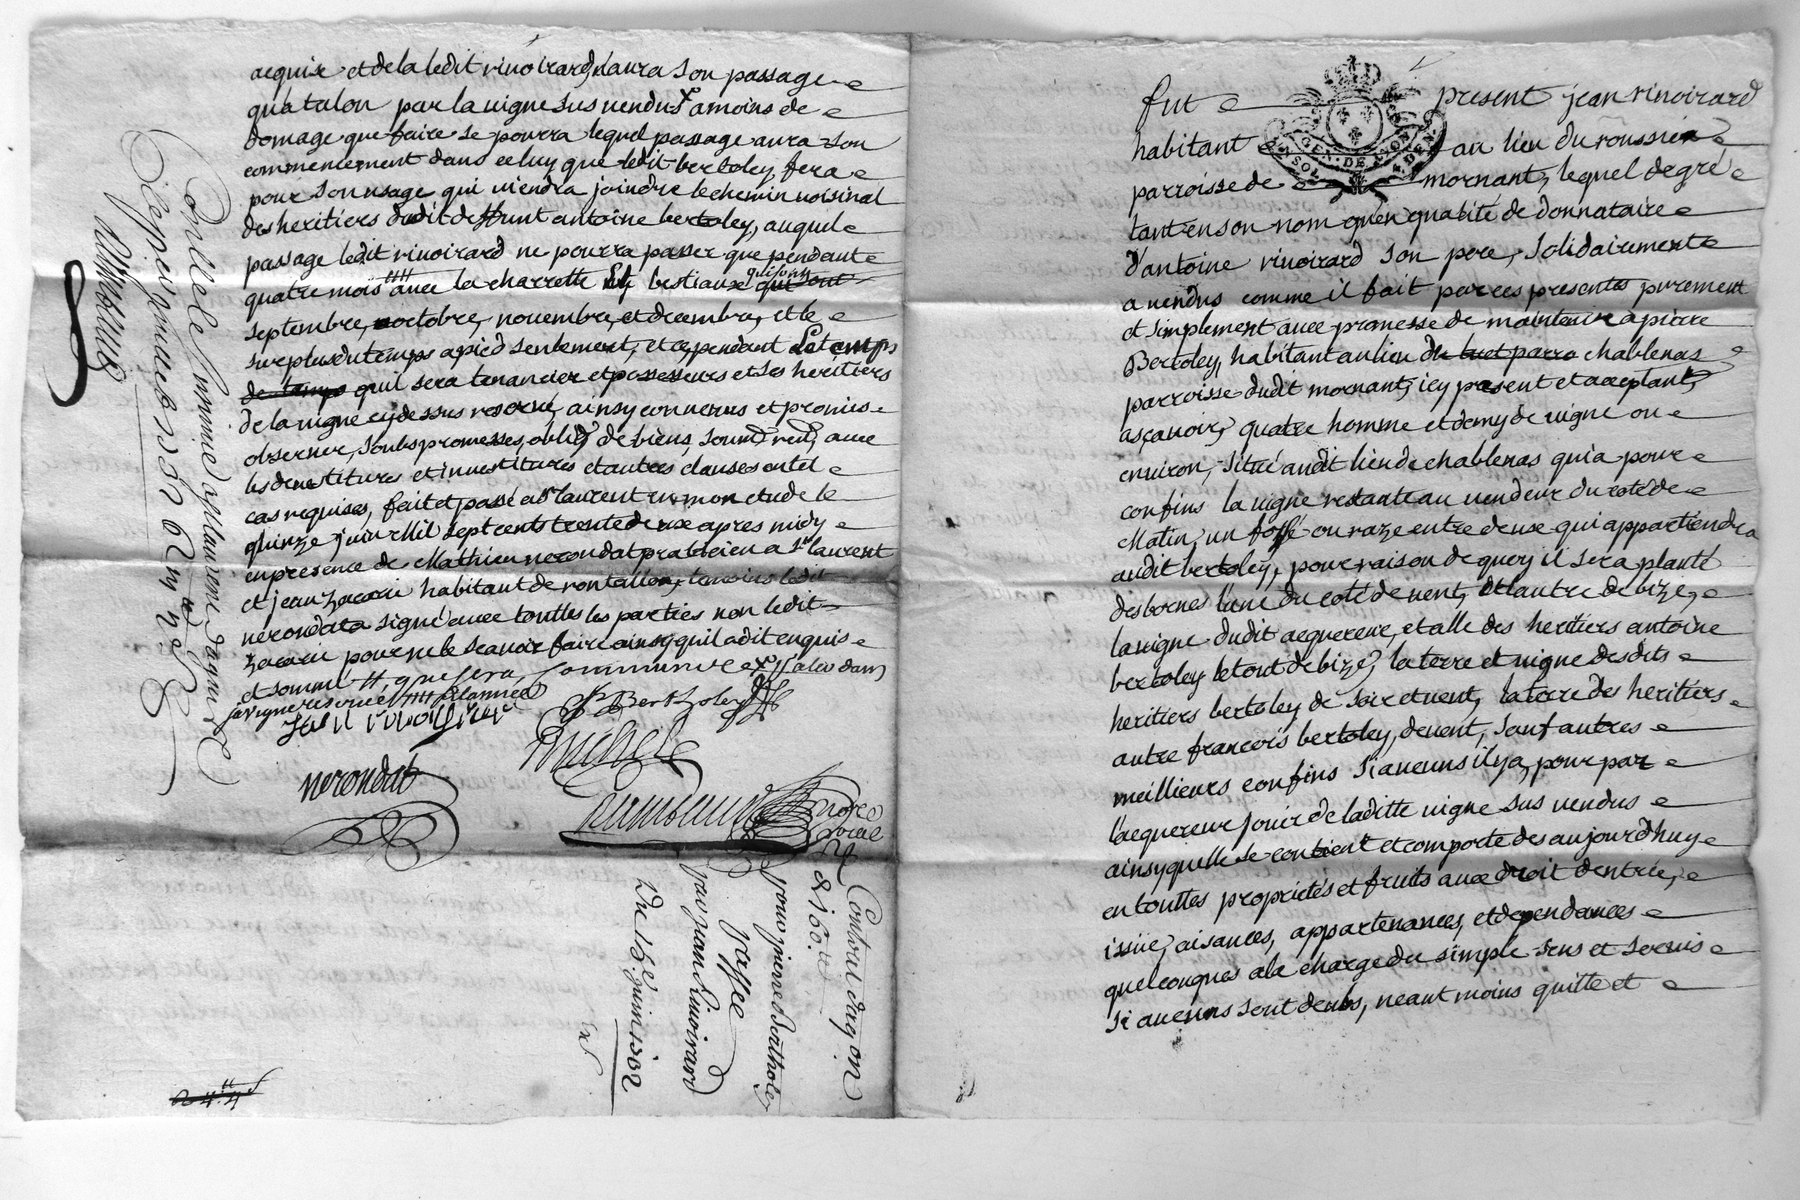 fut present jean rivoirard
habitant au lieu du roussier
parroisse de mornant, lequel de gré
tant en son nom qu'en qualité de donnataire
d'antoine rivoirard son pere, solidairement
a vendus comme il fait par ces presentes purement
et simplement avec promesse de maintenir a pierre
Bertoley, habitant au lieu chablenas
parroisse dudit mornant, icy present et acceptant,
asçavoir, quatre homme et demy de vigne ou
environ, situé audit lieu de chablenas qui a pour
confins la vigne restante au vendeur du coté de
Matin un fossé ou raze entre deux qui appartiendra
audit bertoley, pour raison de quoy il sera planté
des bornes l'une du coté de vent, et l'autre de bize,
la vigne dudit acquereur, et alle des heritiers antoine
bertoley le tout de bize, la terre et vigne desdits
heritiers bertoley de soir et vent, la terre des heritiers
autre francois bertoley, de vent, sauf autres
meillieurs confins si aucuns il y a, pour par
l'acquereur jouir de laditte vigne sus vendus
ainsy quelle se contient et comporte des aujourd'huy
en touttes proprietés et fruits aux droit d'entrée,
issüe, aisances, appartenances, et dependances
quelconques a la charge du simple sens et servis
si aucuns sont deubs, neant moins quitte et
acquix et de la ledit rivoirard, aura son passage
qua talon par la vigne sus vendu a moins de
domage que faire se pourra lequel passage aura son
commencement dans celuy que ledit bertoley, fera
pour son usage qui viendra joindre le chemin voisinal
des heritiers dudit deffunt antoine bertoley, auquel
passage ledit rivoirard ne pourra passer que pendant
quatre mois avec la charrette bestiaux qui sont
septembre, octobre, novembre, et decembre, et le
surplus du temps a pied seulement, et ce pendant Le temps
qu'il sera tenancier et possesseurs et ses heritiers
de la vigne cy dessus reservé, ainsy convenus et promis
observer, soubs promesses, oblig de biens, soumd rend, avec
les devestitures et investitures et autres clauses en tel
cas requises, fait et passé a St laurent en mon etude le
quinze juin Mil sept cents trente deux apres midy
en presence de Mathieu nerondat praticien a St laurent
et jean zacarie habitant de rontallon, temoins ledit
nerondat a signé avec touttes les parties non ledit
zacarie pour ne le scavoir faire ainsy qu'il a dit enquis
et sommé # que sera commune
la vigne reservée #### de l'année
P Bertholey
nerondat
nore
roial
Control d'aynon
& 160
pour pierre bertholey
passée
par jean Rivoirard
Du 15e juin 1732